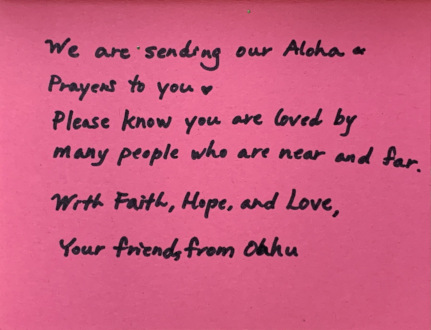 We are sending our Aloha &
Prayers to you ♥
Please know you are loved by
many people who are near and far.
With Faith, Hope, and Love,
Your friends from Oahu